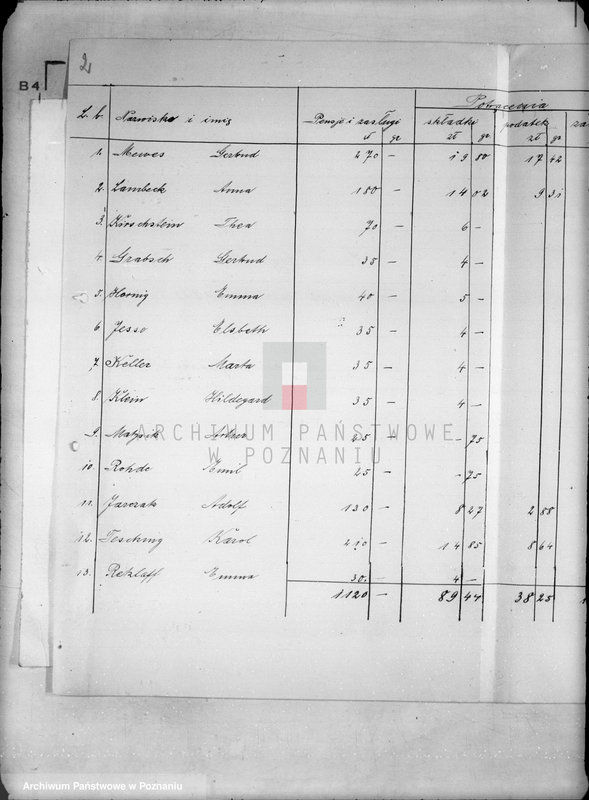 2
B4
Potrącenia
L. b. Nazwisko i imię Pensje i zasługi składki podatek za
zł gr zł gr zł gr
1. Mewes Gertrud 270 — 19 80 17 42
2. Lambeck Anna 180 — 14 02 9 31
3. Kirschstein Thea 70 — 6 —
4. Grabsch Gertrud 35 — 4 —
5. Hornig Emma 40 — 5 —
6 Jesse Elsbeth 35 — 4 —
7 Keller Marta 35 — 4 —
8 Klein Hildegard 35 — 4 —
9. Matysik 25 — — 75
10. Rohde Emil 25 — — 75
11. Jarczak Adolf 130 — 8 27 2 88
12. Tesching Karol 210 — 14 85 8 64
13. Retzlaff Emma 30. — 4 —
1120 — 89 44 38 25
ARCHIWUM PAŃSTWOWE
W POZNANIU
Archiwum Państwowe w Poznaniu